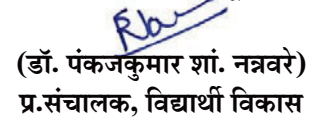 (डॉ. पंकजकुमार शां. नन्नवरे)
प्र.संचालक, विद्यार्थी विकास